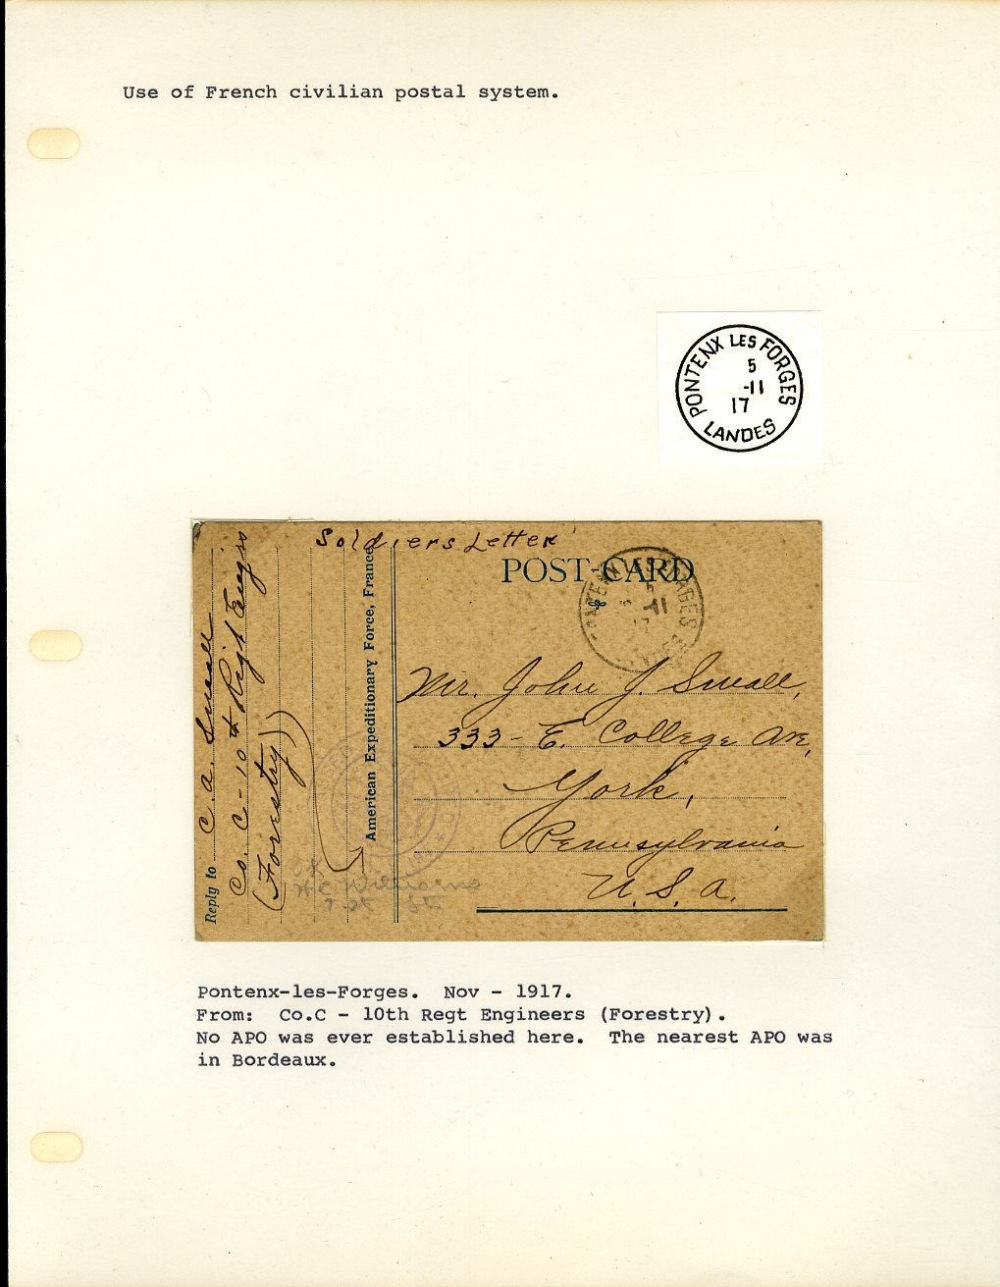 Use of French civilian postal system.
PONTENX LES FORGES
5
-11
17
LANDES
Soldiers Letter
POST-CARD
Reply to C. a. Small
Co. C - 10th Regt Engrs
(Forestry)
American Expeditionary Force, France
Mr. John J. Small,
333 - E. College Ave,
York,
Pennsylvania
U. S. a.
OK
Williams
Pontenx-les-Forges.  Nov - 1917.
From:  Co.C - 10th Regt Engineers (Forestry).
No APO was ever established here.  The nearest APO was
in Bordeaux.